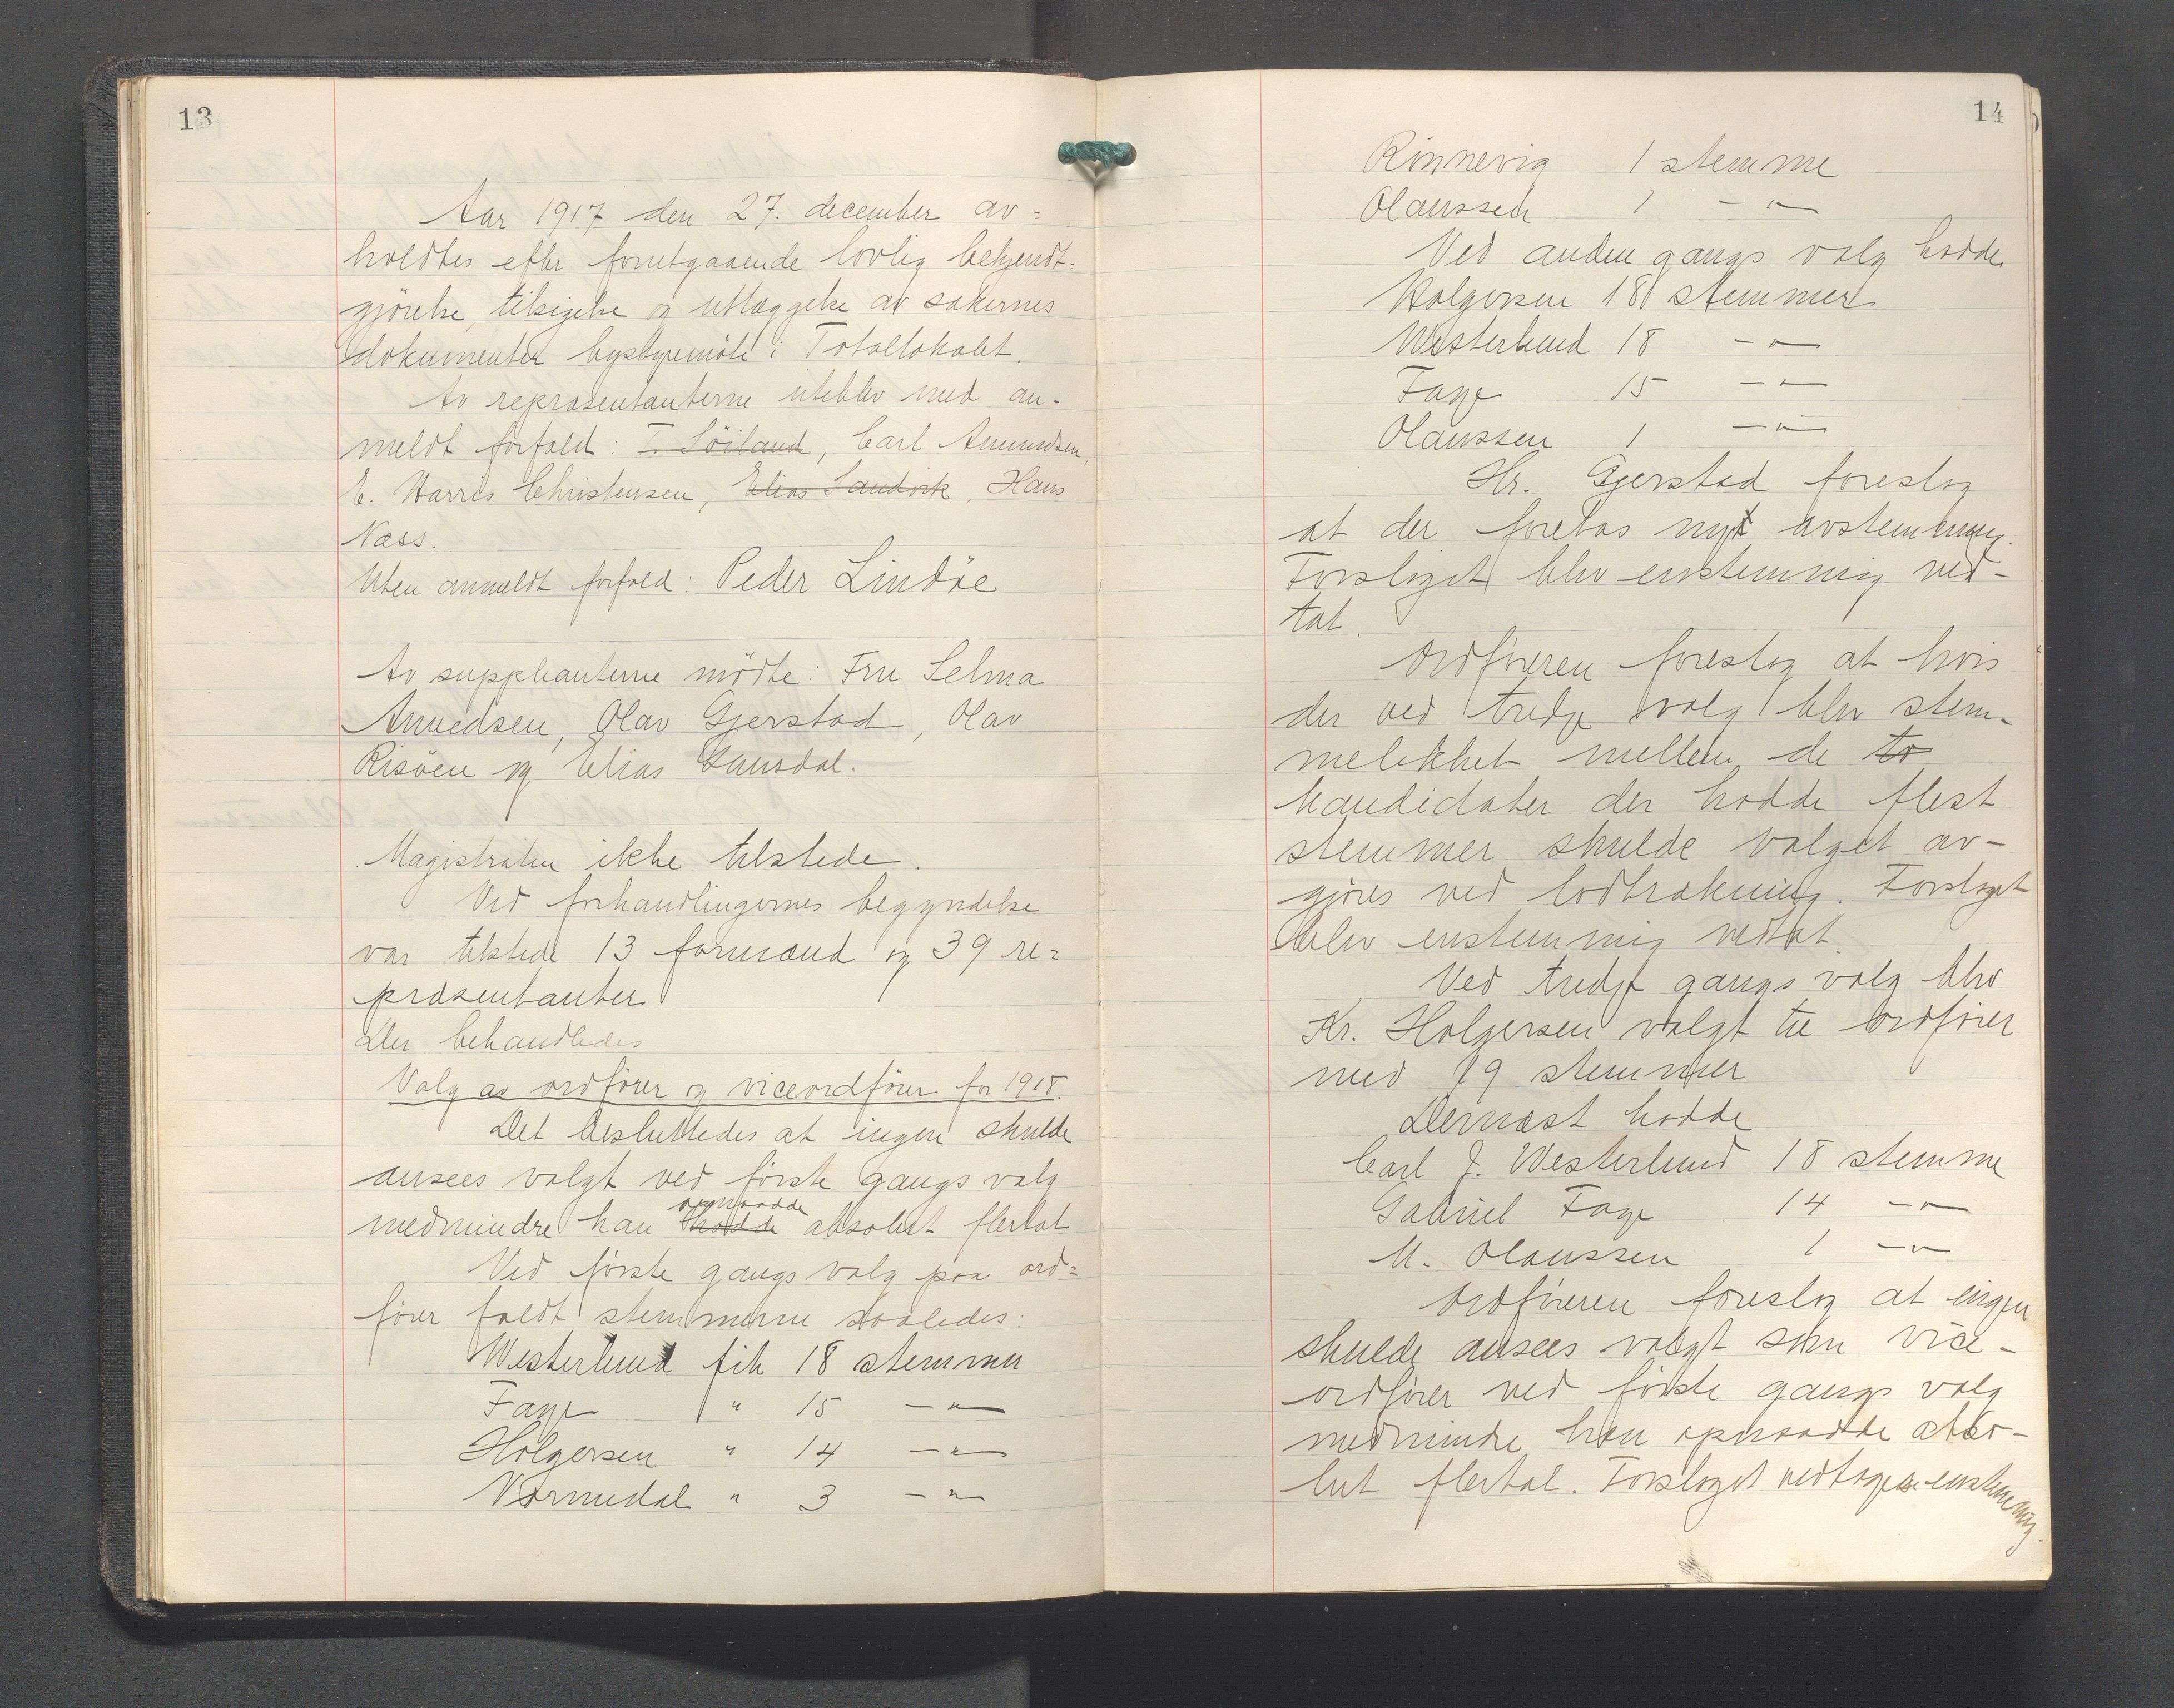 13
Aar 1917 den 27. december av=
holdtes efter forutgaaende lovlig bekjendt=
gjörelse, tilsigelse og utlæggelse av sakernes
dokumenter bystyremöte i Totallokalet.
Av repræsentanterne uteblev med an-
meldt forfald: T. Söiland, Carl Amundsen,
E. Harris Christensen, Elias Sandvik, Hans
Næss.
Uten anmeldt forfald: Peder Lindöe
Av suppleanterne mödte: Fru Selma
Anvedsen, Olav Gjerstad, Olav
Risöen og Elias Lansdal.
Magistraten ikke tilstede.
Ved forhandlingernes begyndelse
var tilstede 13 formænd og 39 re=
præsentanter.
Der behandledes
Valg av ordförer og viceordförer for 1918.
Det besluttedes at ingen skulde
ansees valgt ved förste gangs valg
opnaadde
medmindre han hadde absolut flertal
Ved förste gangs valg paa ord=
förer faldt stemmerne saaledes:
Westerlund fik 18 stemmer
Fage " 15 -"-
Holgersen " 14 -"-
Vormedal " 3 -"-
14
Rönnevig 1 stemme
Olaussen 1 -"-
Ved anden gangs valg hadde
Holgersen 18 stemmer
Westerlund 18 -"-
Fage 15 -"-
Olaussen 1 -"-
Hr. Gjerstad foreslog
at der foretas ny avstemning.
Forslaget blev enstemmig ved-
tat.
Ordföreren foreslog at hvis
der ved tredje valg blev stem-
melikhet mellem de to
kandidater der hadde flest
stemmer skulde valget av-
gjöres ved lodtrækning. Forslaget
blev enstemmig vedtat.
Ved tredje gangs valg blev
Kr. Holgersen valgt til ordförer
med 19 stemmer
Dernæst hadde
Carl J. Westerlund 18 stemme
Gabriel Fage 14 -"-
M. Olaussen 1 -"-
Ordföreren foreslog at ingen
skulde ansees valgt som vice-
ordförer ved förste gangs valg
medmindre han opnaadde abso-
lut flertal. Forslaget vedtages enstemmig.